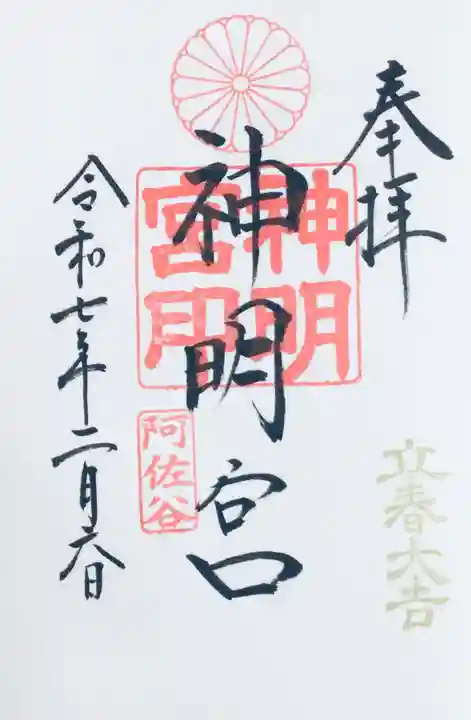 奉拝
立春大吉
神明宮
神明
宮印
阿佐谷
令和七年二月六日